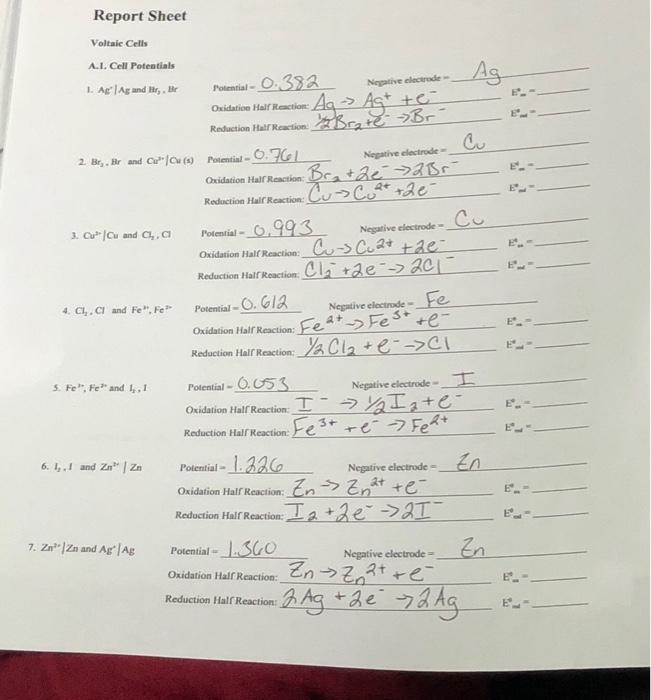 Report Sheet
Voltaic Cells
A.1. Cell Potentials
1. Ag⁺|Ag and Br₂, Br⁻ Potential = 0.382 Negative electrode = Ag
Oxidation Half Reaction: Ag → Ag⁺ + e⁻ E°ox =
Reduction Half Reaction: ½Br₂ + e⁻ → Br⁻ E°red =
2. Br₂, Br⁻ and Cu²⁺|Cu (s) Potential = 0.761 Negative electrode = Cu
Oxidation Half Reaction: Br₂ + 2e⁻ → 2Br⁻ E°ox =
Reduction Half Reaction: Cu → Cu²⁺ + 2e⁻ E°red =
3. Cu²⁺|Cu and Cl₂, Cl⁻ Potential = 0.993 Negative electrode = Cu
Oxidation Half Reaction: Cu → Cu2+ + 2e⁻ E°ox =
Reduction Half Reaction: Cl₂⁻ + 2e⁻ → 2Cl⁻ E°red =
4. Cl₂, Cl⁻ and Fe³⁺, Fe²⁺ Potential = 0.612 Negative electrode = Fe
Oxidation Half Reaction: Fe²⁺ → Fe³⁺ + e⁻ E°ox =
Reduction Half Reaction: ½ Cl₂ + e⁻ → Cl E°red =
5. Fe³⁺, Fe²⁺ and I₂, I⁻ Potential = 0.053 Negative electrode = I
Oxidation Half Reaction: I⁻ → ½ I₂ + e⁻ E°ox =
Reduction Half Reaction: Fe³⁺ + e⁻ → Fe²⁺ E°red =
6. I₂, I⁻ and Zn²⁺ | Zn Potential = 1.226 Negative electrode = Zn
Oxidation Half Reaction: Zn → Zn²⁺ + e⁻ E°ox =
Reduction Half Reaction: I₂ + 2e⁻ → 2I⁻ E°red =
7. Zn²⁺|Zn and Ag⁺|Ag Potential = 1.360 Negative electrode = Zn
Oxidation Half Reaction: Zn → Zn²⁺ + e⁻ E°ox =
Reduction Half Reaction: 2 Ag + 2e⁻ → 2 Ag E°red =